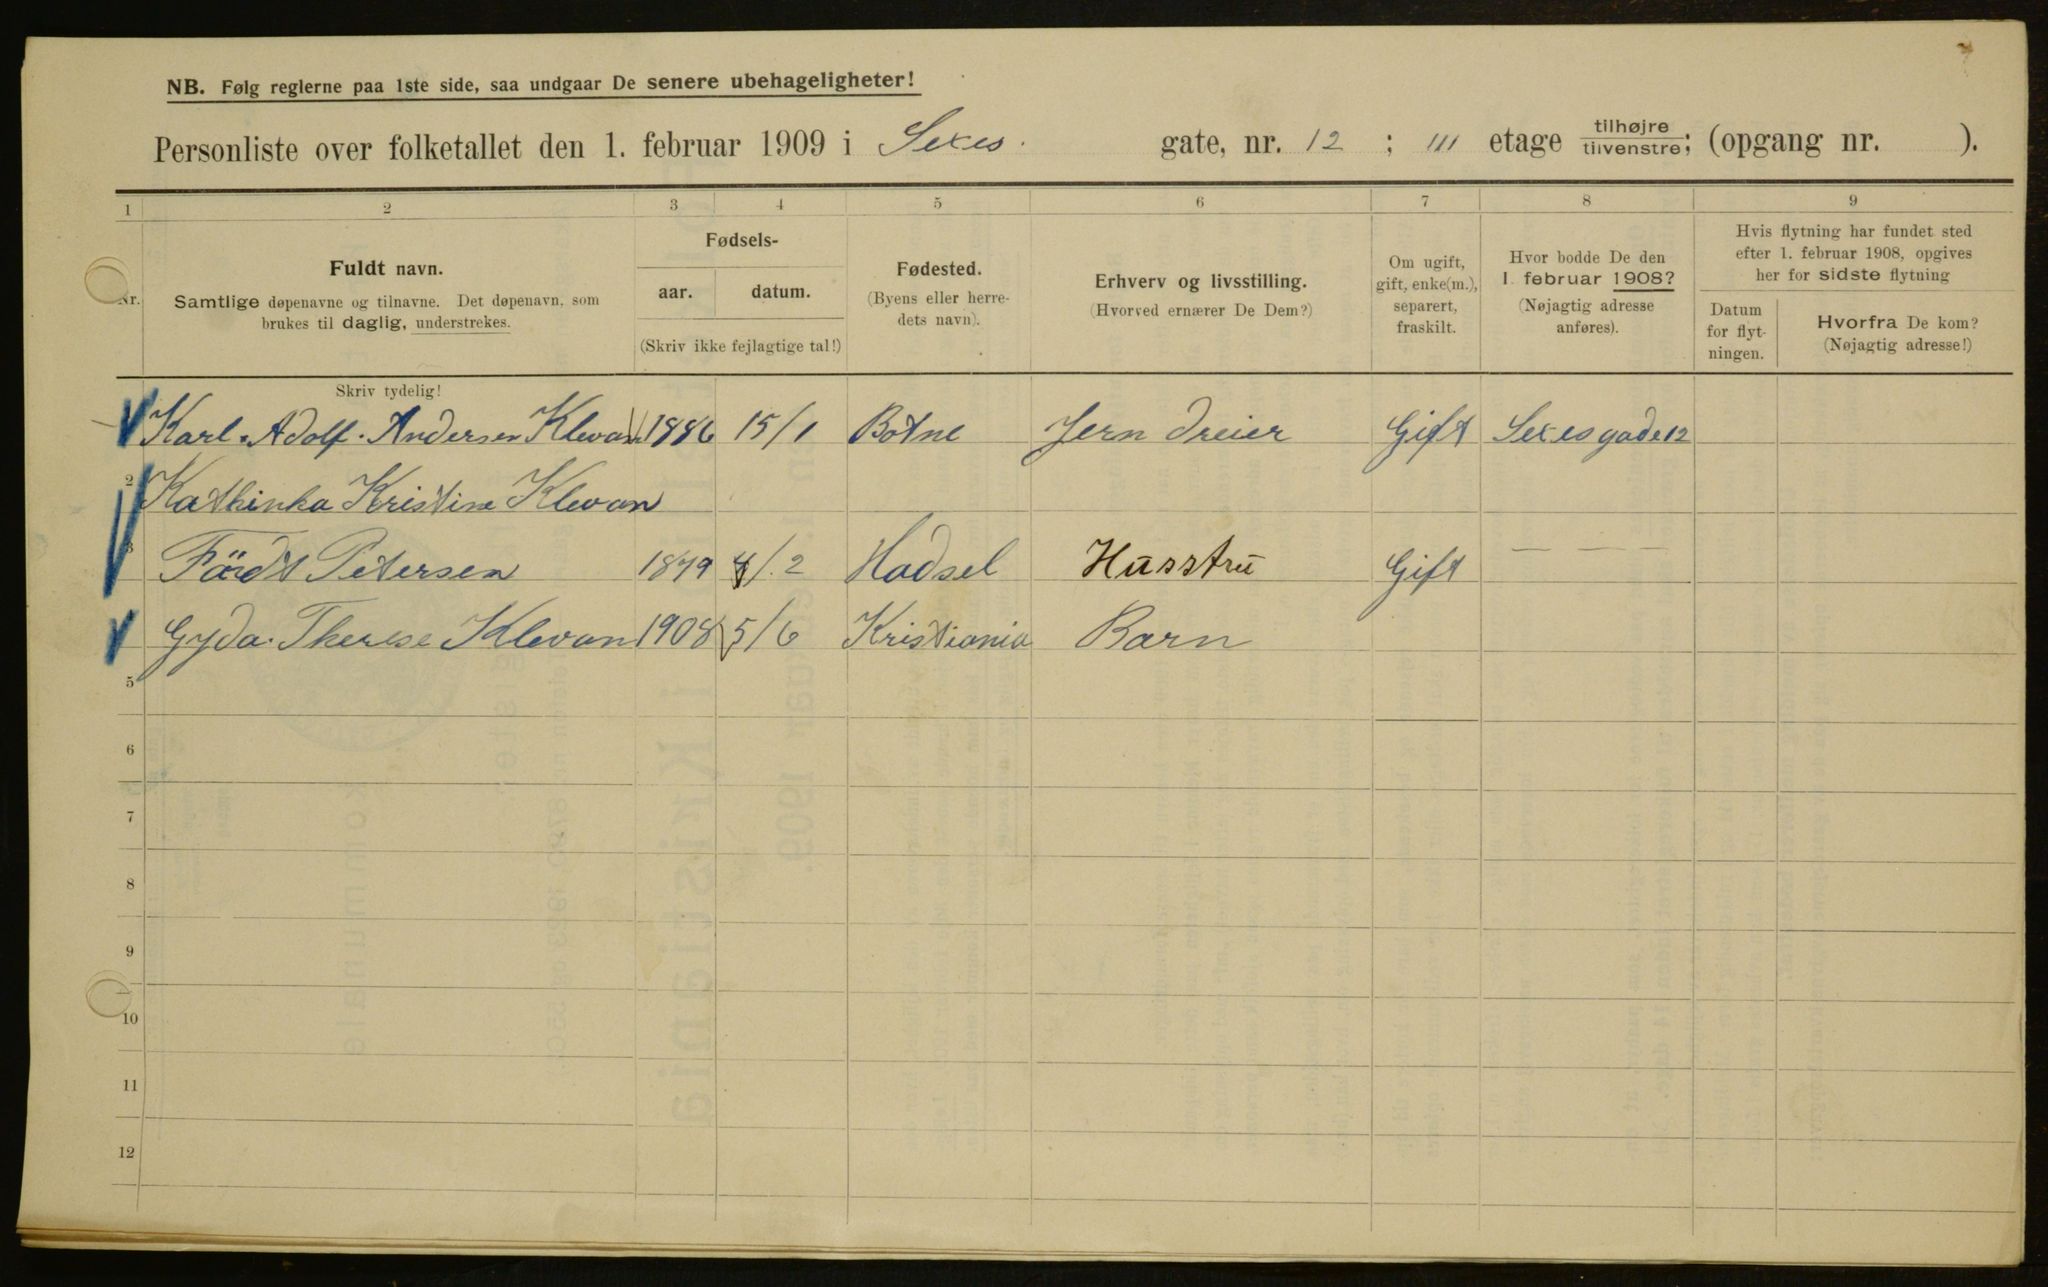 NB. Følg reglerne paa 1ste side, saa undgaar De senere ubehageligheter!
Personliste over folketallet den 1. februar 1909 i Sexes. gate, nr. 12 ; III etage tilhøjre tilvenstre; (opgang nr. ).
1 2 3 4 5 6 7 8 9
Nr.
Fuldt navn.
Samtlige døpenavne og tilnavne. Det døpenavn, som
brukes til daglig, understrekes.
Fødsels-
aar. datum.
(Skriv ikke fejlagtige tal!)
Fødested.
(Byens eller herre-
dets navn).
Erhverv og livsstilling.
(Hvorved ernærer De Dem?)
Om ugift,
gift, enke(m.),
separert,
fraskilt.
Hvor bodde De den
1. februar 1908?
(Nøjagtig adresse
anføres).
Hvis flytning har fundet sted
efter 1. februar 1908, opgives
her for sidste flytning
Datum
for flyt-
ningen.
Hvorfra De kom?
(Nøjagtig adresse!)
Skriv tydelig!
Karl. Adolf. Andersen Klevan 1886 15/1 Botne Jern dreier Gift Sexesgade 12
2 Kathinka Kristine Klevan
3 Födt Petersen 1879 4/2 Hadsel Husstru Gift — — —
Gyda. Therese Klevan 1908 5/6 Kristiania Barn
5
6
7
8
9
10
11
12